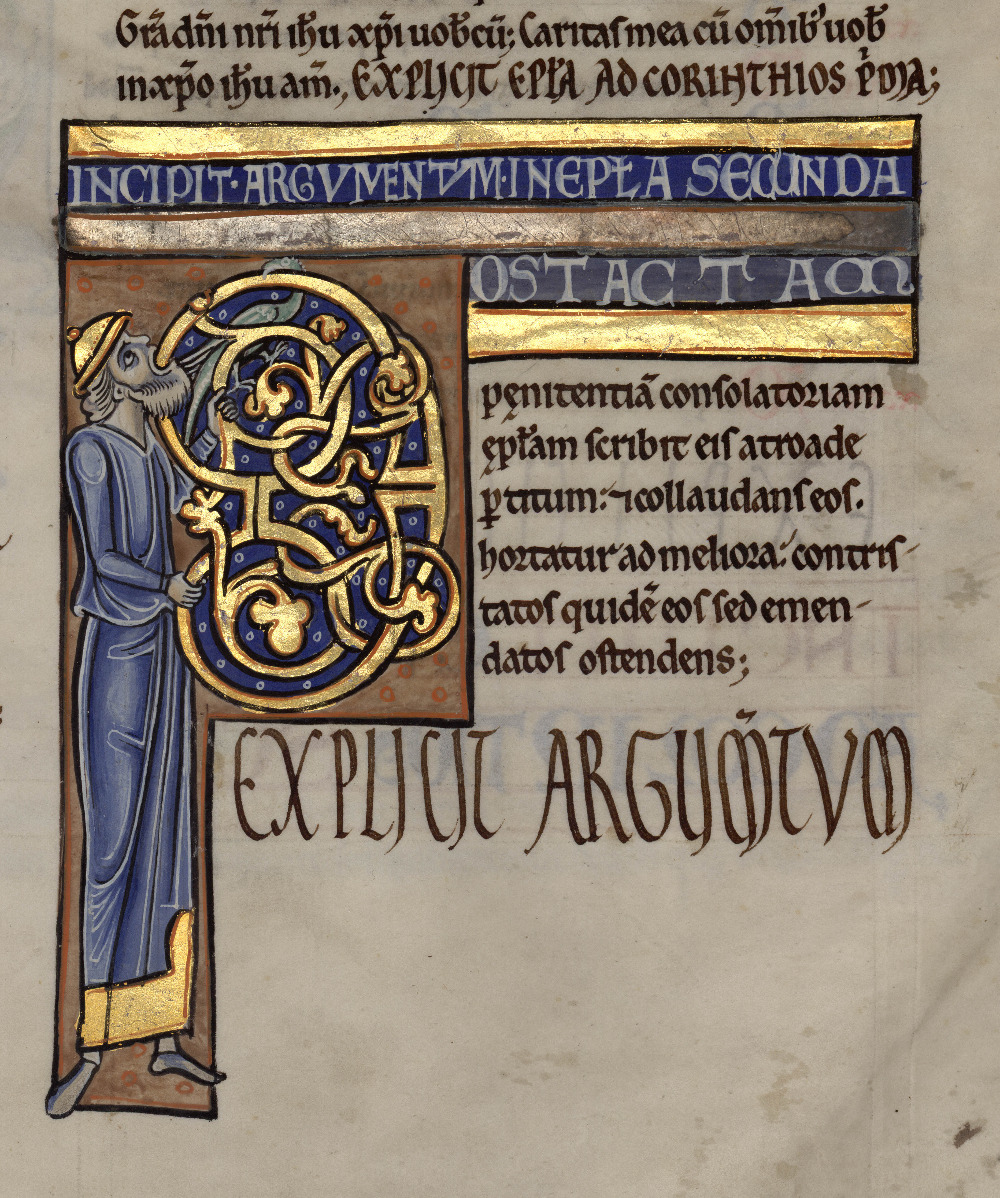 Gr̃a dñi nr̃i ihũ xp̃i uob̃cũ; Caritas mea cũ om̃ib; uob̃
in xp̃o ihũ am̃., EXPLICIT EPLA AD CORINTHIOS P̃MA;
INCIPIT·ARGVMENTVM·IN EPŁA SECUNDA
POST ACTAM
pęnitentiã consolatoriam
ępłam scribit eis a troade
ꝑ titum: ⁊ collaudans eos.
hortatur ad meliora: contris-
tatos quidẽ eos sed emen-
datos ostendens;
EXPLICIT ARGUM̃TVM